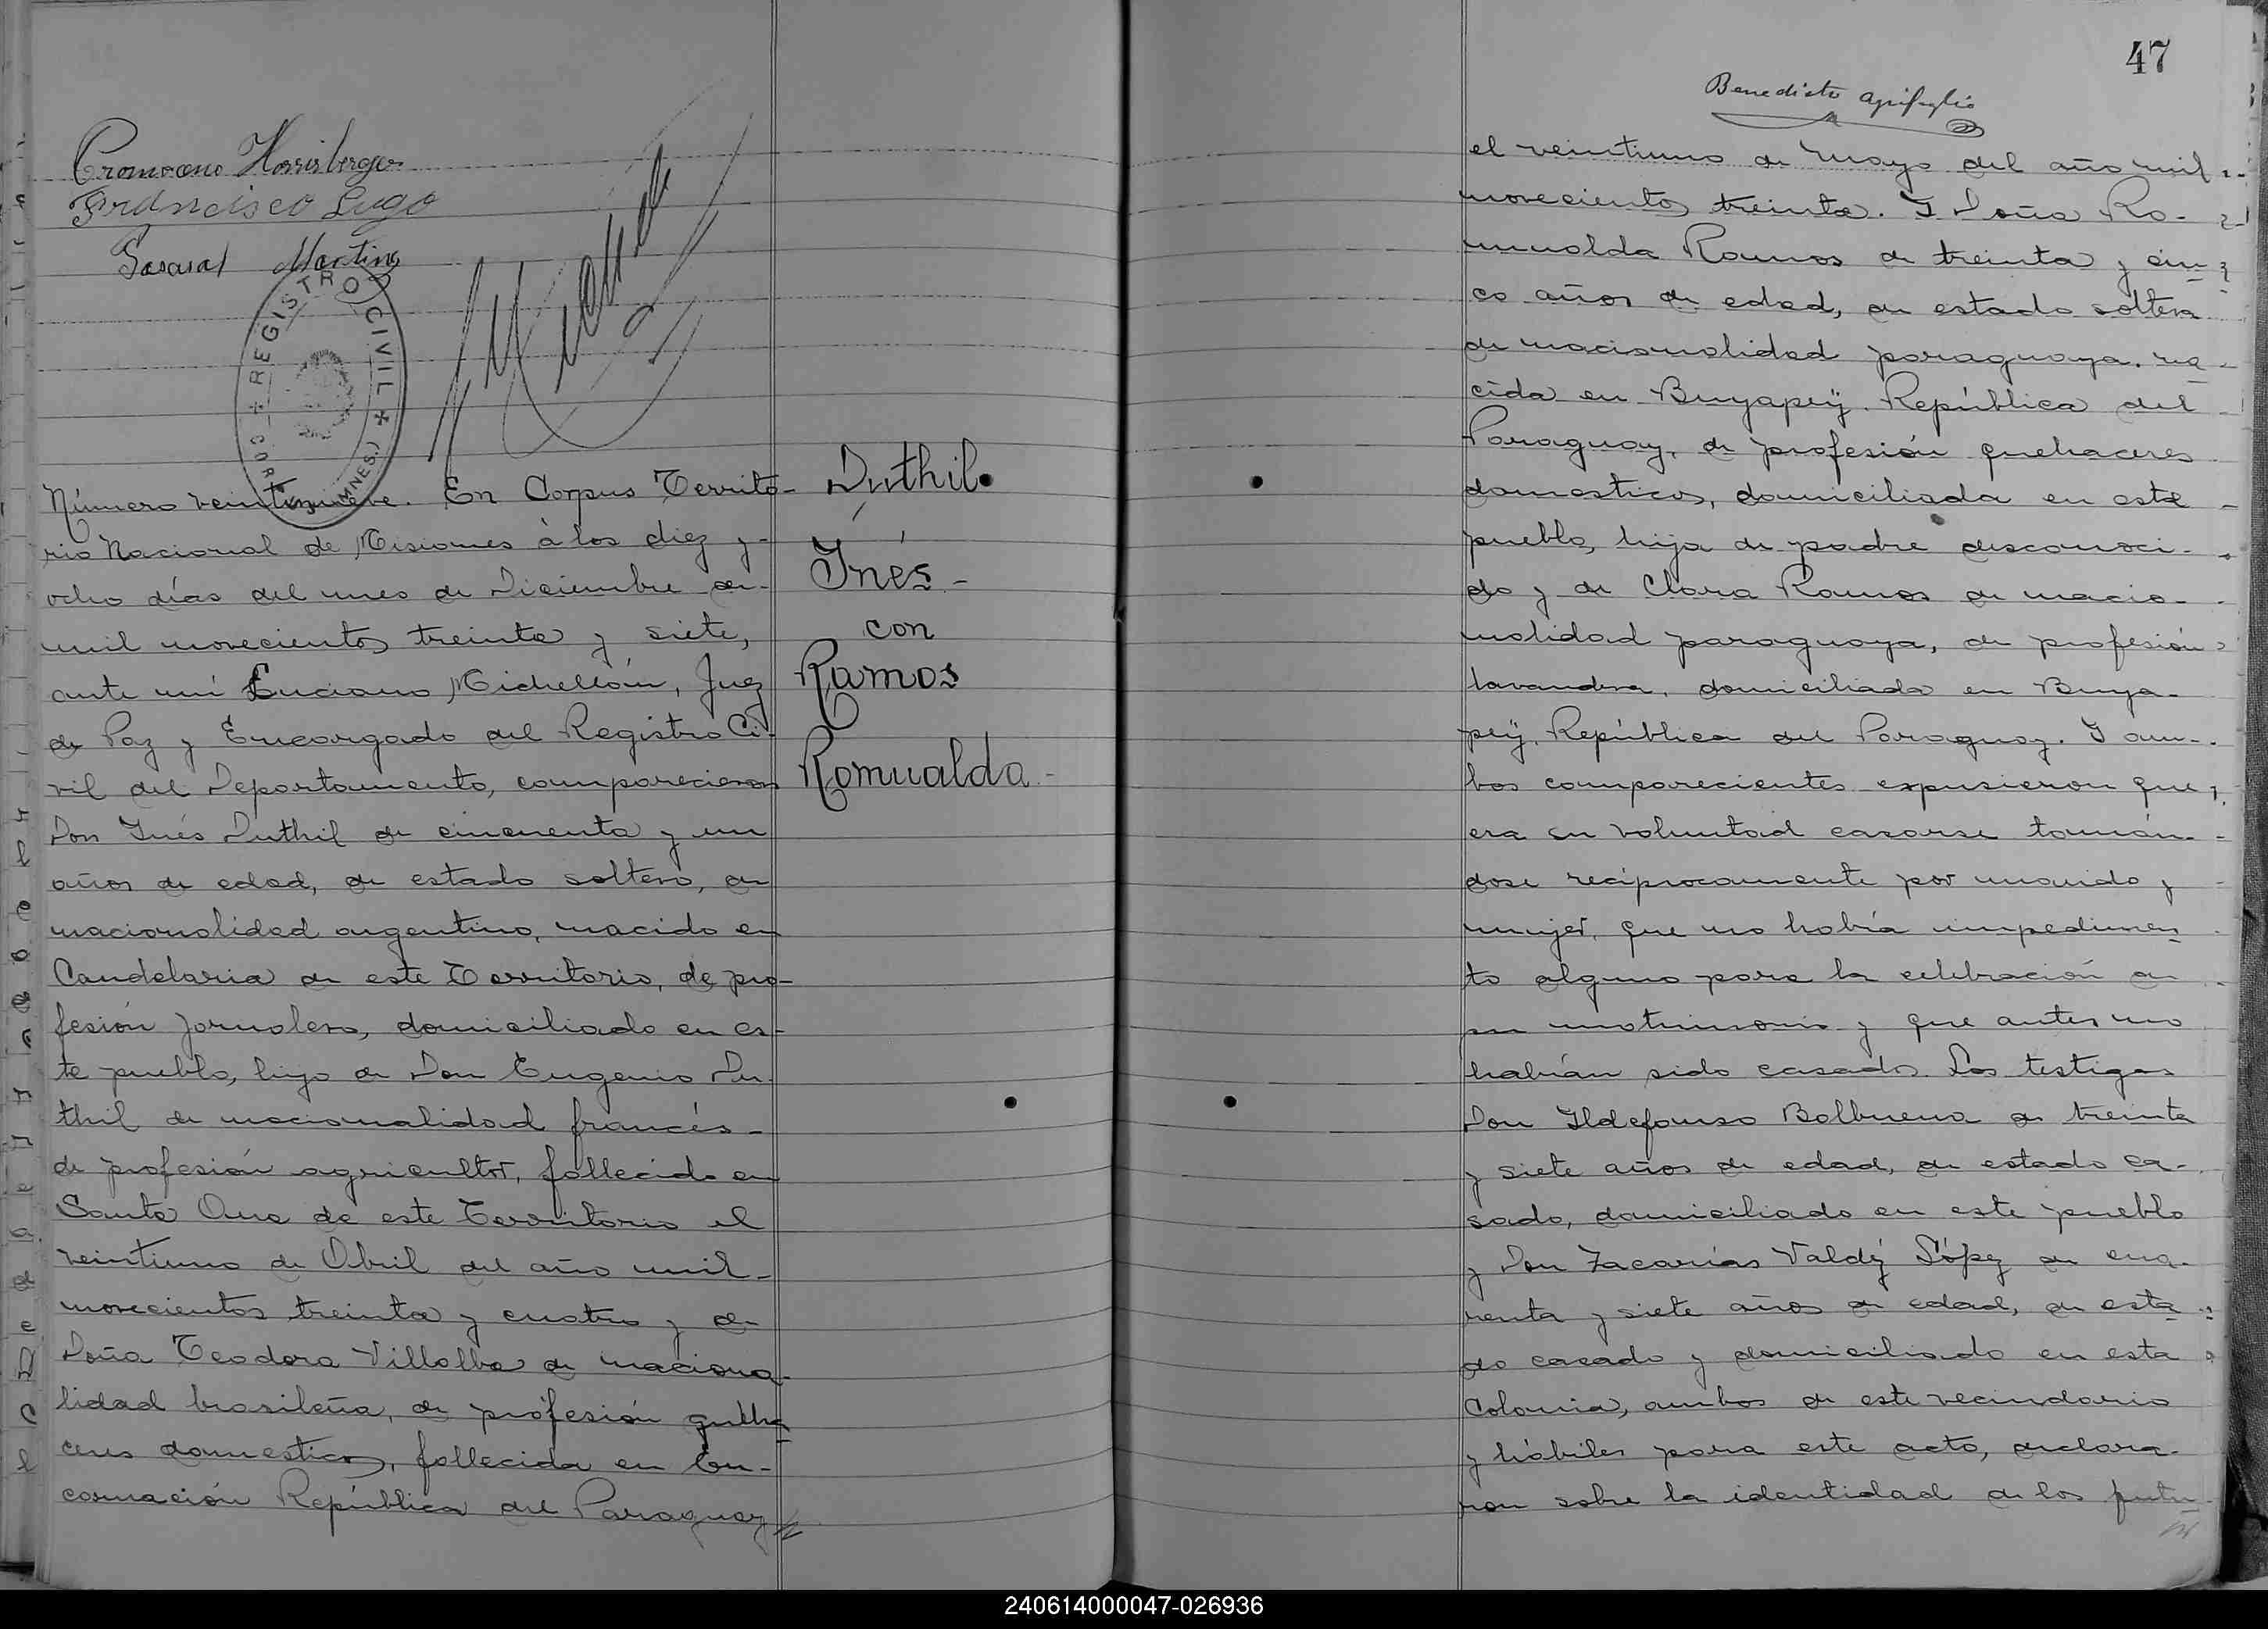 Francisco Lugo
Martins
REGISTRO CIVIL
Número veintinueve. En Corpus Territo-
rio Nacional de Misiones à los diez y-
ocho días del mes de Diciembre de-
mil novecientos treinta y siete,
ante mi Luciano Michellón, Juez
de Paz y Encargado del Registro Ci-
vil del Departamento, comparecieron
Don Inés Duthil de cincuenta y un
años de edad, de estado soltero, de
nacionalidad argentino, nacido en
Candelaria de este Territorio, de pro-
fesión jornalero, domiciliado en es-
te pueblo, hijo de Don Eugenio Du-
thil de nacionalidad francés-
de profesión agricultor, fallecido en
Santa Ana de este Territorio el
veintiuno de Abril del año mil-
novecientos treinta y cuatro y de
Doña Teodora Villalba de naciona-
lidad brasileña, de profesión queha
ceres domesticos, fallecida en En-
carnación República del Paraguay
Duthil
Inés-
con
Ramos
Romualda-
47
Benedicto
el veintiuno de Mayo del año mil
novecientos treinta. Y Doña Ro-
mualda Ramos de treinta y cin-
co años de edad, de estado soltera
de nacionalidad paraguaya, na-
cida en Buyapeÿ República del
Paraguay, de profesión quehaceres
domesticos, domiciliada en este
pueblo, hija de padre desconoci-
do y de Clara Ramos de nacio-
nalidad paraguaya, de profesión
lavandera, domiciliada en Buya-
peÿ, República del Paraguay. Y am-
bos comparecientes expusieron que
era su voluntad casarse tomán-
dose recíprocamente por marido y
mujer, que no había impedimen-
to alguno para la celebración de
su matrimonio y que antes no
habían sido casados. Los testigos
Don Ildefonso Balbuena de treinta
y siete años de edad, de estado ca-
sado, domiciliado en este pueblo
y Don Zacarías Valdéz López de cua-
renta y siete años de edad, de esta-
do casado y domiciliado en esta
Colonia, ambos de este vecindario
y hábiles para este acto, declara-
ron sobre la identidad de los futu-
240614000047-026936